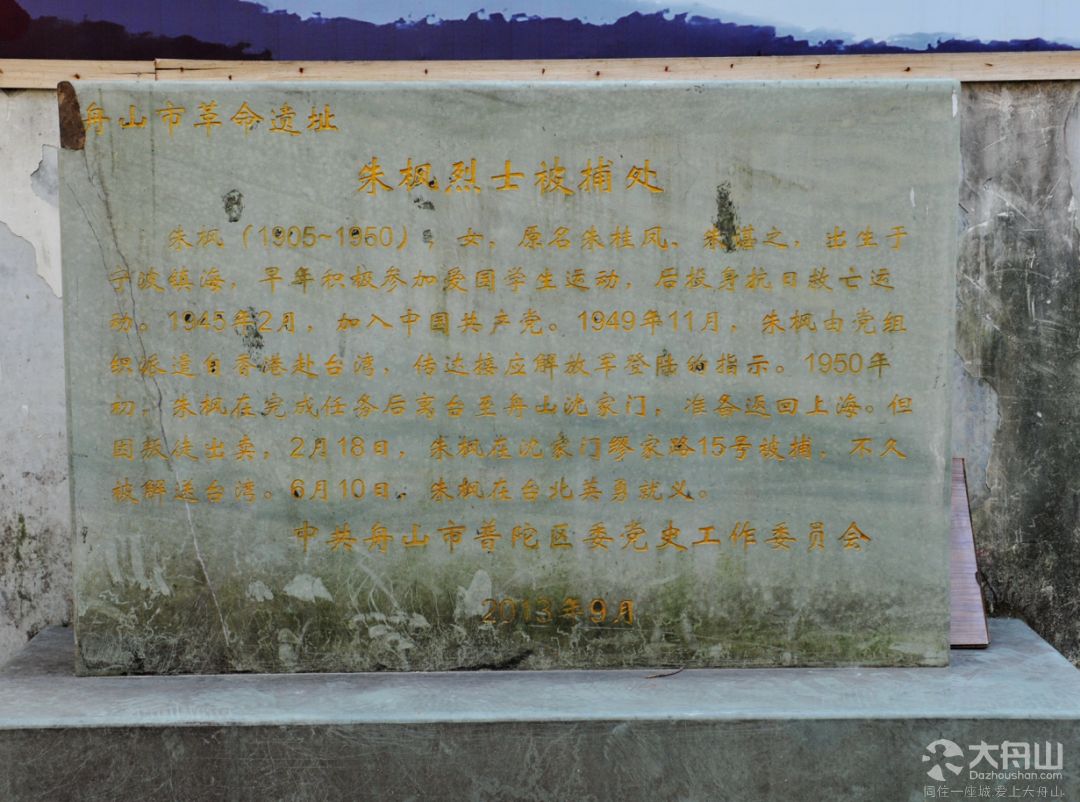 舟山市革命遗址
朱枫烈士被捕处
朱枫（1905~1950），女，原名朱桂凤、朱谌之，出生于
宁波镇海，早年积极参加爱国学生运动，后投身抗日救亡运
动。1945年2月，加入中国共产党。1949年11月，朱枫由党组
织派遣自香港赴台湾，传达接应解放军登陆的指示。1950年
初，朱枫在完成任务后离台至舟山沈家门，准备返回上海。但
因叛徒出卖，2月18日，朱枫在沈家门缪家路15号被捕，不久
被解送台湾。6月10日，朱枫在台北英勇就义。
中共舟山市普陀区委党史工作委员会
2013年9月
大舟山
Dazhoushan.com
同住一座城,爱上大舟山.